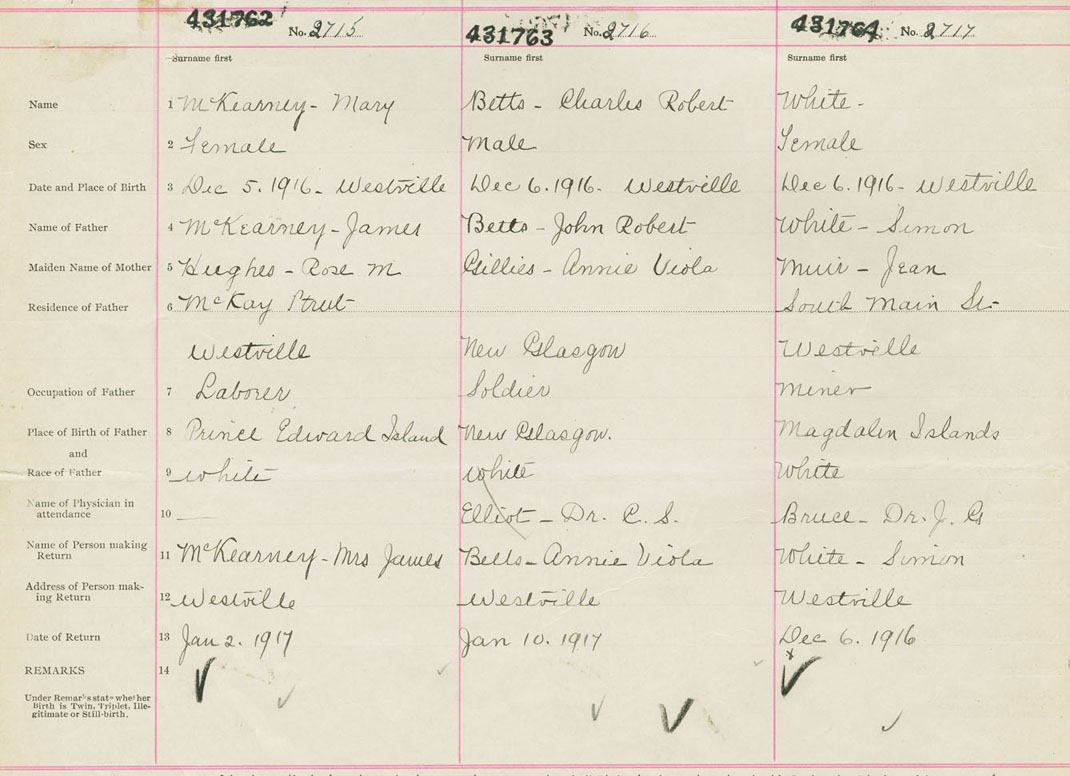 431762 No. 2715 431763 No. 2716 431764 No. 2717
Surname first Surname first Surname first
Name 1 McKearney - Mary Betts - Charles Robert White -
Sex 2 Female Male Female
Date and Place of Birth 3 Dec 5. 1916 - Westville Dec 6. 1916 - Westville Dec 6. 1916 - Westville
Name of Father 4 McKearney - James Betts - John Robert White - Simon
Maiden Name of Mother 5 Hughes - Rose M Gillies - Annie Viola Muir - Jean
Residence of Father 6 McKay Street South Main St.
Westville New Glasgow Westville
Occupation of Father 7 Laborer Soldier Miner
Place of Birth of Father 8 Prince Edward Island New Glasgow. Magdalen Islands
and
Race of Father 9 White White White
Name of Physician in
attendance 10 — Elliot - Dr. C. S. Bruce - Dr. J. G
Name of Person making
Return 11 McKearney - Mrs James Betts - Annie Viola White - Simon
Address of Person mak-
ing Return 12 Westville Westville Westville
Date of Return 13 Jan 2. 1917 Jan 10. 1917 Dec 6. 1916
REMARKS 14
Under Remarks state whether
Birth is Twin, Triplet, Ille-
gitimate or Still-birth.